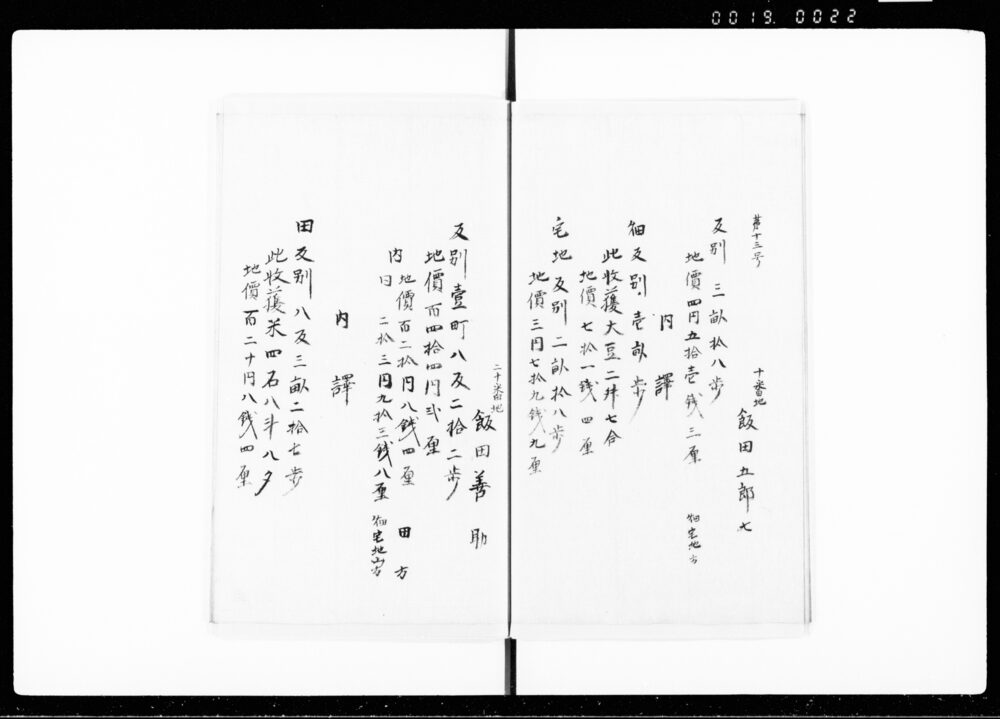 0019. 0022
第十三号
十番地
飯田五郎七
反別 三畝拾八歩
地價四円五拾壱銭三厘
畑宅地方
内譯
畑反別壱畝歩
此收獲大豆二舛七合
地價七拾一銭四厘
宅地反別二畝拾八歩
地價三円七拾九銭九厘
二十番地
飯田善助
反別壹町八反二拾二歩
地價百四拾四円弐厘
内 地價百二拾円八銭四厘 田方
内 二拾三円九拾三銭八厘 畑宅地山方
内譯
田反別八反三畝二拾七歩
此收獲米四石八斗八夕
地價百二十円八銭四厘